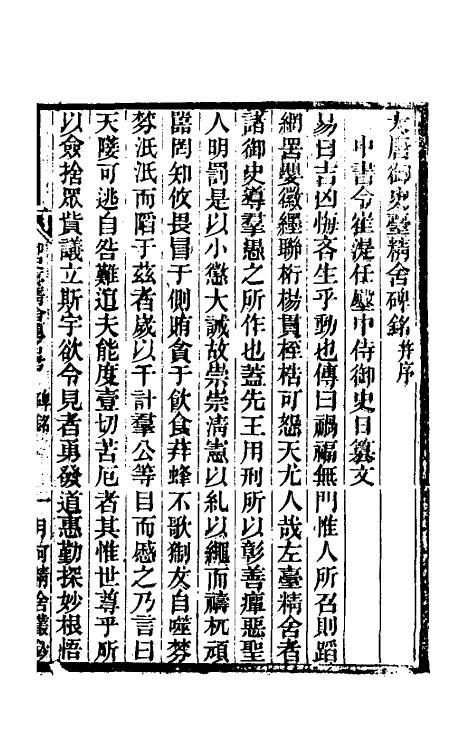 大唐御史臺精舍碑銘并序
中書令崔湜任殿中侍御史日纂文
易曰吉凶悔吝生乎動也傳曰禍福無門惟人所召則蹈
網罟嬰徽纆聯桁楊貫桎梏可怨天尤人哉左臺精舍者
諸御史導羣愚之所作也蓋先王用刑所以彰善癉惡聖
人明罰是以小懲大誡故崇崇清憲以糺以繩而禱杌頑
嚚罔知攸畏冒于側賄貪于飲食荓蜂不歌猘友自噬棼
棼泯泯而陷于茲者歲以千計羣公等目而慼之乃言曰
天陵可逃自咎難逭夫能度壹切苦厄者其惟世尊乎所
以僉捨眾貲議立斯宇欲令見者勇發道惠勤探妙根悟
碑銘
月河精舍叢鈔